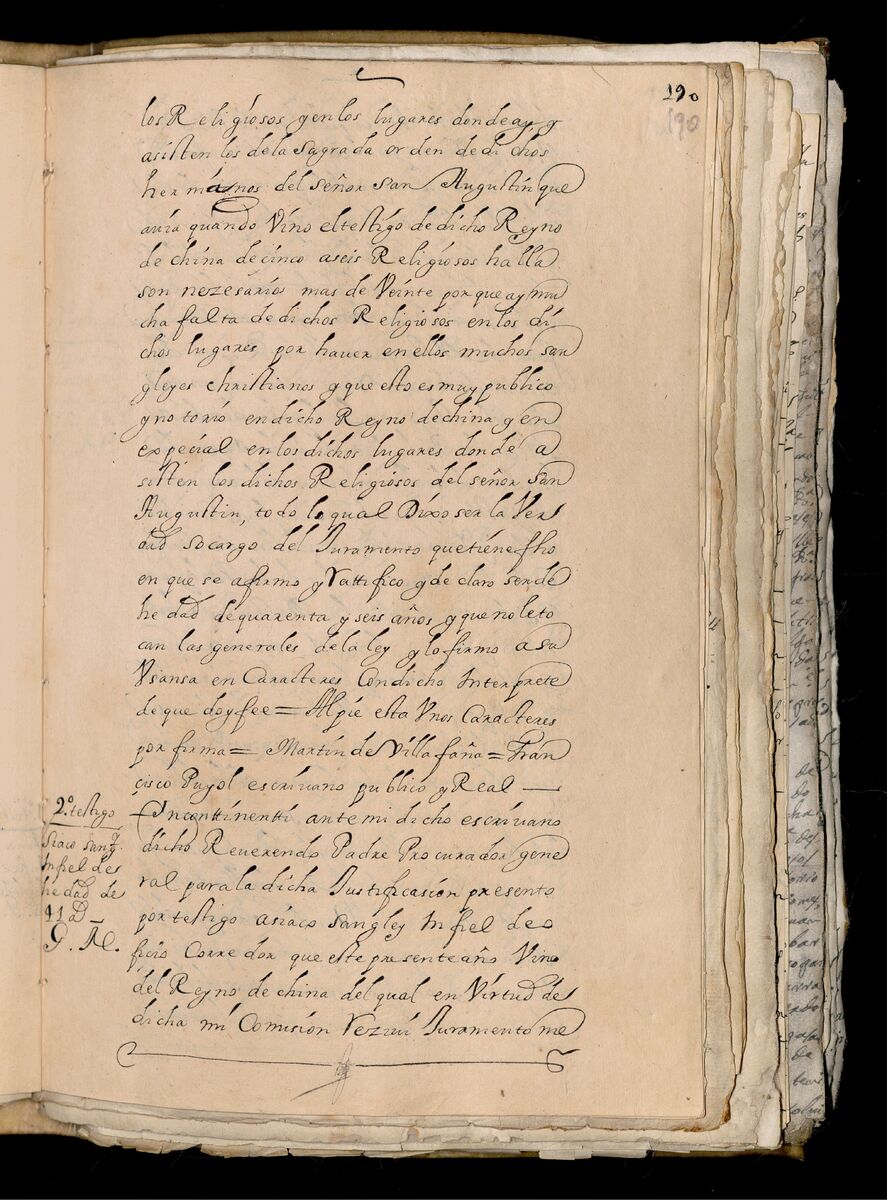 190
190
los Religiosos y en los lugares donde ay, y
asisten los dela sagrada orden dedichos
hermanos del señor san Augustin que
auia quando Vino eltestigo de dicho Reyno
de china decinco aseis Religiosos halla
son nezesarios mas de Veinte por que ay mu
cha falta dedichos Religiosos en los di
chos lugares por hauer en ellos muchos san
gleyes christianos y que esto es muy publico
y no torio en dicho Reyno dechina y en
expecial en los dichos lugares donde a
sisten los dichos Religiosos del señor san
Augustin, todo lo qual Dixo ser la Ver
dad so cargo del Juramento que tiene fho
en que se afirmo y Rattifico y de claro ser de
he dad de quarenta y seis años y que no le to
can las generales de la ley y lo firmo a su
Vsansa en Caracteres Con dicho Interprete
de que doy fee = Al pie esta Vnos Caracteres
por firma = Martin de Villafaña = Fran
çisco Puyol escriuano publico y Real —
2.º testigo
Siaco sangl.
Infiel de
he dad de
41 aº
G. M.
Ynconttinentti ante mi dicho escriuano
dicho Reuerendo Padre Procurador gene
ral para la dicha Justificasion presento
por testigo a siaco sangley Infiel de o
ficio Corredor que este presente año Vino
del Reyno de china del qual en Virtud de
dicha mi Comision Reziui Juramento me